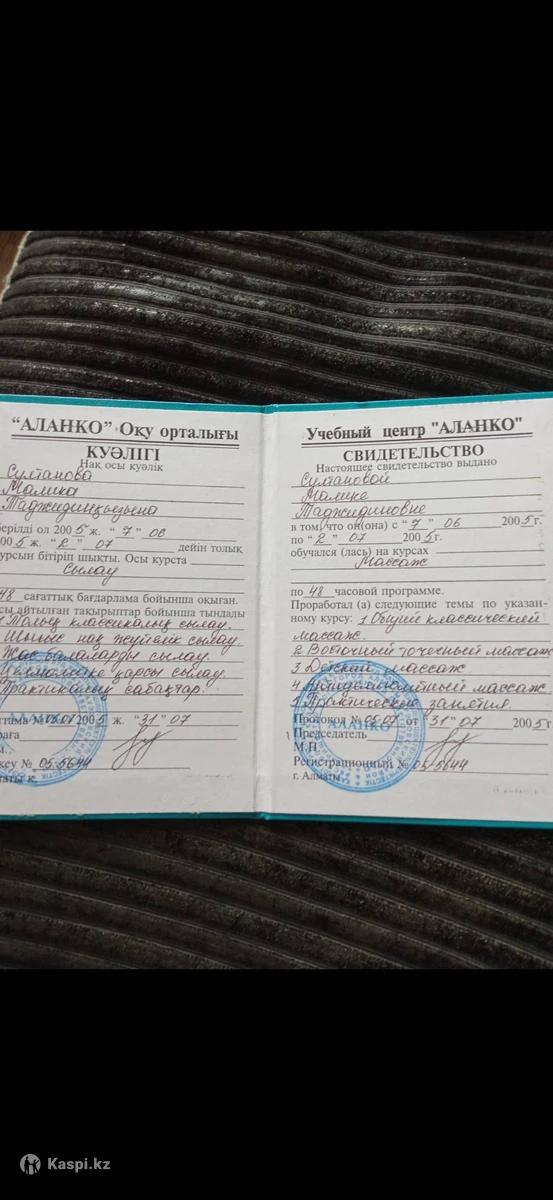 “АЛАНКО” Оқу орталығы
КУӘЛІГІ
Нақ осы куәлік
Султанова
Малика
Таджидинқызына
берілді ол 2005 ж. “ 7 ” 06
2005 ж. “ 2 ” 07 дейін толық
курсын бітіріп шықты. Осы курста
Сылау
48 сағаттық бағдарлама бойынша оқыған.
айтылған тақырыптар бойынша тыңдады
1 Толық классикалық сылау.
Шығыс нақ жүйелік сылау.
Жас балаларды сылау.
қарсы сылау.
Практикалық сабақтар.
№ 05.07 2005 ж. “31” 07
№ 05.5644
Учебный центр "АЛАНКО"
СВИДЕТЕЛЬСТВО
Настоящее свидетельство выдано
Султановой
Малике
Таджидиновне
в том, что он(она) с “ 7 ” 06 2005г.
по “ 2 ” 07 2005г.
обучался (лась) на курсах
Массаж
по 48 часовой программе.
Проработал (а) следующие темы по указан-
ному курсу: 1 Общий классический
массаж.
2 Восточный точечный массаж
3 Детский массаж
4 Антицеллюлитный массаж
5 Практические занятия.
Протокол № 05.07 от “31” 07 2005г
Председатель
М.П.
Регистрационный № 05.5644
г. Алматы
АЛАНКО
Kaspi.kz